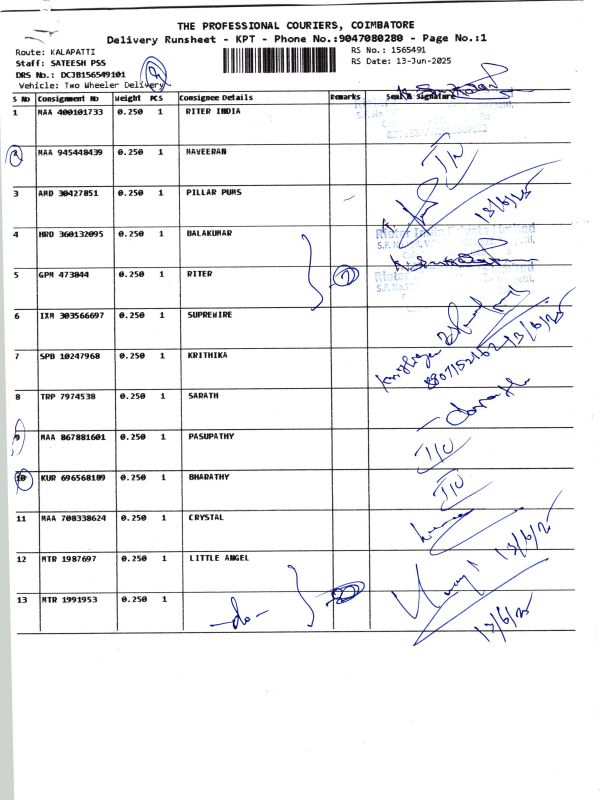 THE PROFESSIONAL COURIERS, COIMBATORE
Delivery Runsheet - KPT - Phone No.:9047080280 - Page No.:1
Route: KALAPATTI
RS No.: 1565491
Staff: SATEESH PSS
RS Date: 13-Jun-2025
DRS No.: DCJB156549101
Vehicle: Two Wheeler Delivery
S NO Consignment No Weight PCS Consignee Details Remarks Seal & Signature
1 MAA 400101733 0.250 1 RITER INDIA
2 MAA 945448439 0.250 1 MAVEERAN
3 AMD 30427851 0.250 1 PILLAR PUMS
13/6/25
4 HRD 360132095 0.250 1 BALAKUMAR
5 GPM 473844 0.250 1 RITER 2
6 IXM 303566697 0.250 1 SUPREWIRE
13/6/25
7 SPB 10247968 0.250 1 KRITHIKA
8 TRP 7974538 0.250 1 SARATH
9 MAA 867881601 0.250 1 PASUPATHY
10 KUR 696568189 0.250 1 BHARATHY
11 MAA 708338624 0.250 1 CRYSTAL
12 MTR 1987697 0.250 1 LITTLE ANGEL
13/6/25
13 MTR 1991953 0.250 1 -do-
13/6/25